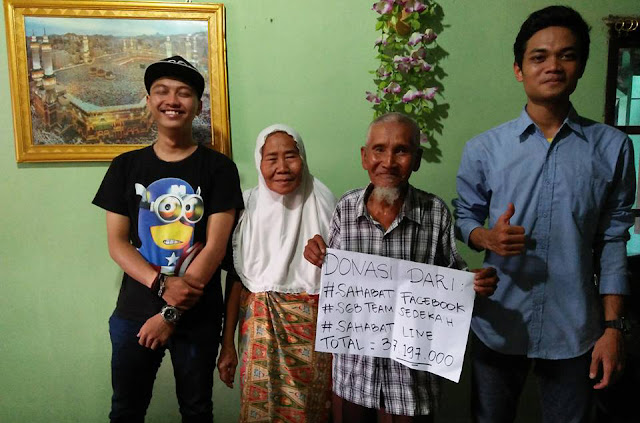 DONASI DARI :
# SAHABAT FACEBOOK
# SGB TEAM SEDEKAH
# SAHABAT LINE
TOTAL = 37.197.000